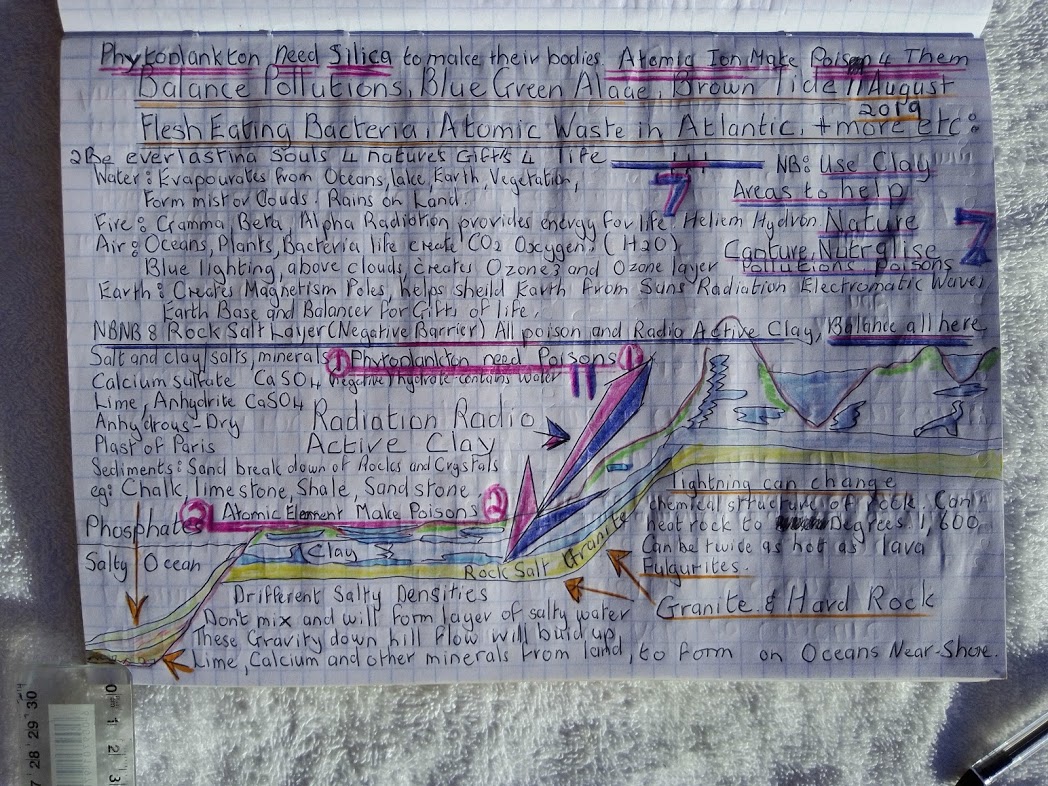 Phytoplankton Need Silica to make their bodies. Atomic Ion Make Poison 4 Them
Balance Pollutions, Blue Green Algae, Brown Tide 11 August
2019
Flesh Eating Bacteria, Atomic Waste in Atlantic, + more etc:
2Be everlasting souls 4 natures Gift's 4 life
NB: Use Clay
Water: Evapourates from Oceans, lake, Earth, Vegetation,
7
Areas to help
Form mist or Clouds. Rains on Land.
Fire: Gramma Beta, Alpha Radiation provides energy for life. Heliem Hydron
Nature
7
Air: Oceans, Plants, Bacteria life create CO2 Oxcygen, (H2O)
Capture, Nutralise
Blue lighting, above clouds, creates Ozone3 and Ozone layer
Pollutions Poisons
Earth: Creates Magnetism Poles, helps sheild Earth from Suns Radiation Electromatic Wave,
Earth Base and Balancer for Gifts of life,
NBNB8 Rock Salt Layer (Negative Barrier) All poison and Radio Active Clay, Balance all here
Salt and clay salts, minerals
1 Phytoplankton need Poisons 1
Calcium sulfate CaSO4 (negative) hydrate contains water
11
Lime, Anhydrite CaSO4
Anhydrous-Dry
Plast of Paris
Radiation Radio
Active Clay
Sediments: Sand break down of Rocks and Crystals
eg: Chalk, limestone, Shale, Sandstone
2 Atomic Element Make Poisons 2
Phosphates
Salty Ocean
Clay
Rock Salt
Granite
lightning can change
chemical structure of rock. Can
heat rock to Degrees 1,600
Can be twice as hot as lava
Fulgurites.
Granite & Hard Rock
Drifferent Salty Densities
Don't mix and will form layer of salty water
These Gravity down hill flow will build up,
Lime, Calcium and other minerals from land, to form on Oceans Near-Shore.
0 1 2 3
27 28 29 30